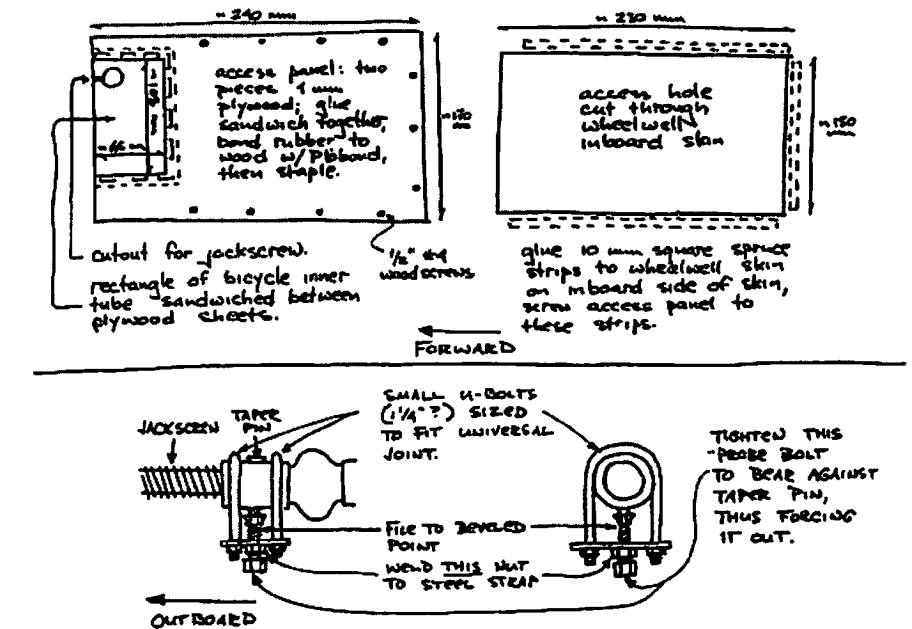 ≈ 240 mm
≈ 230 mm
access panel: two
pieces 1 mm
plywood; glue
sandwich together,
bond rubber to
wood w/Pliobond,
then staple.
≈ 170
mm
access hole
cut through
wheelwell
inboard skin
≈ 150
mm
cutout for jackscrew.
rectangle of bicycle inner
tube sandwiched between
plywood sheets.
1/2" #4
woodscrews
glue 10 mm square spruce
strips to wheelwell skin
on inboard side of skin,
screw access panel to
these strips.
FORWARD
JACKSCREW
TAPER
PIN
SMALL U-BOLTS
(1 1/4" ?) SIZED
TO FIT UNIVERSAL
JOINT.
TIGHTEN THIS
PROBE BOLT
TO BEAR AGAINST
TAPER PIN,
THUS FORCING
IT OUT.
FILE TO BEVELED
POINT
WELD THIS NUT
TO STEEL STRAP
OUTBOARD